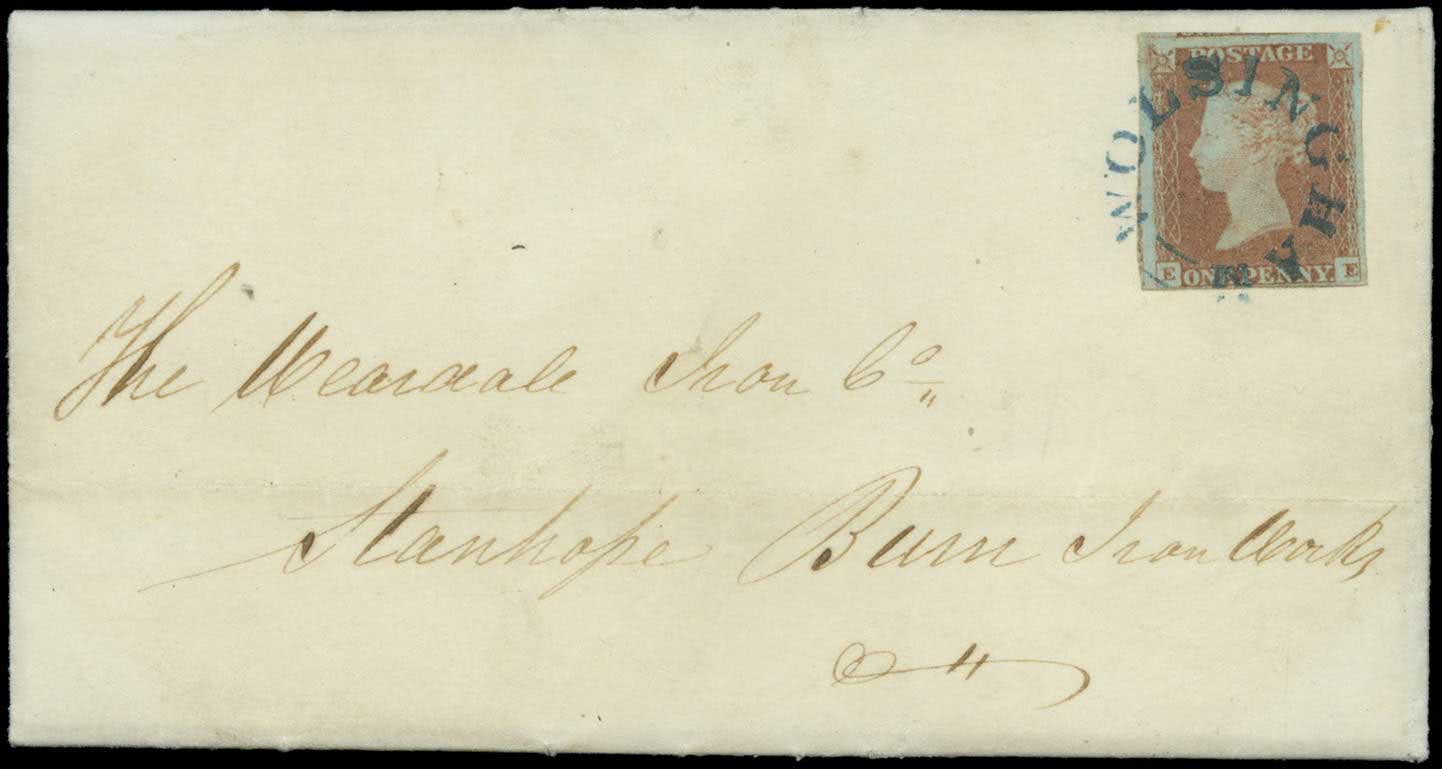 POSTAGE
WOLSINGHAM
E ONE PENNY. E
The Weardale Iron Co
Stanhope Burn Iron Works